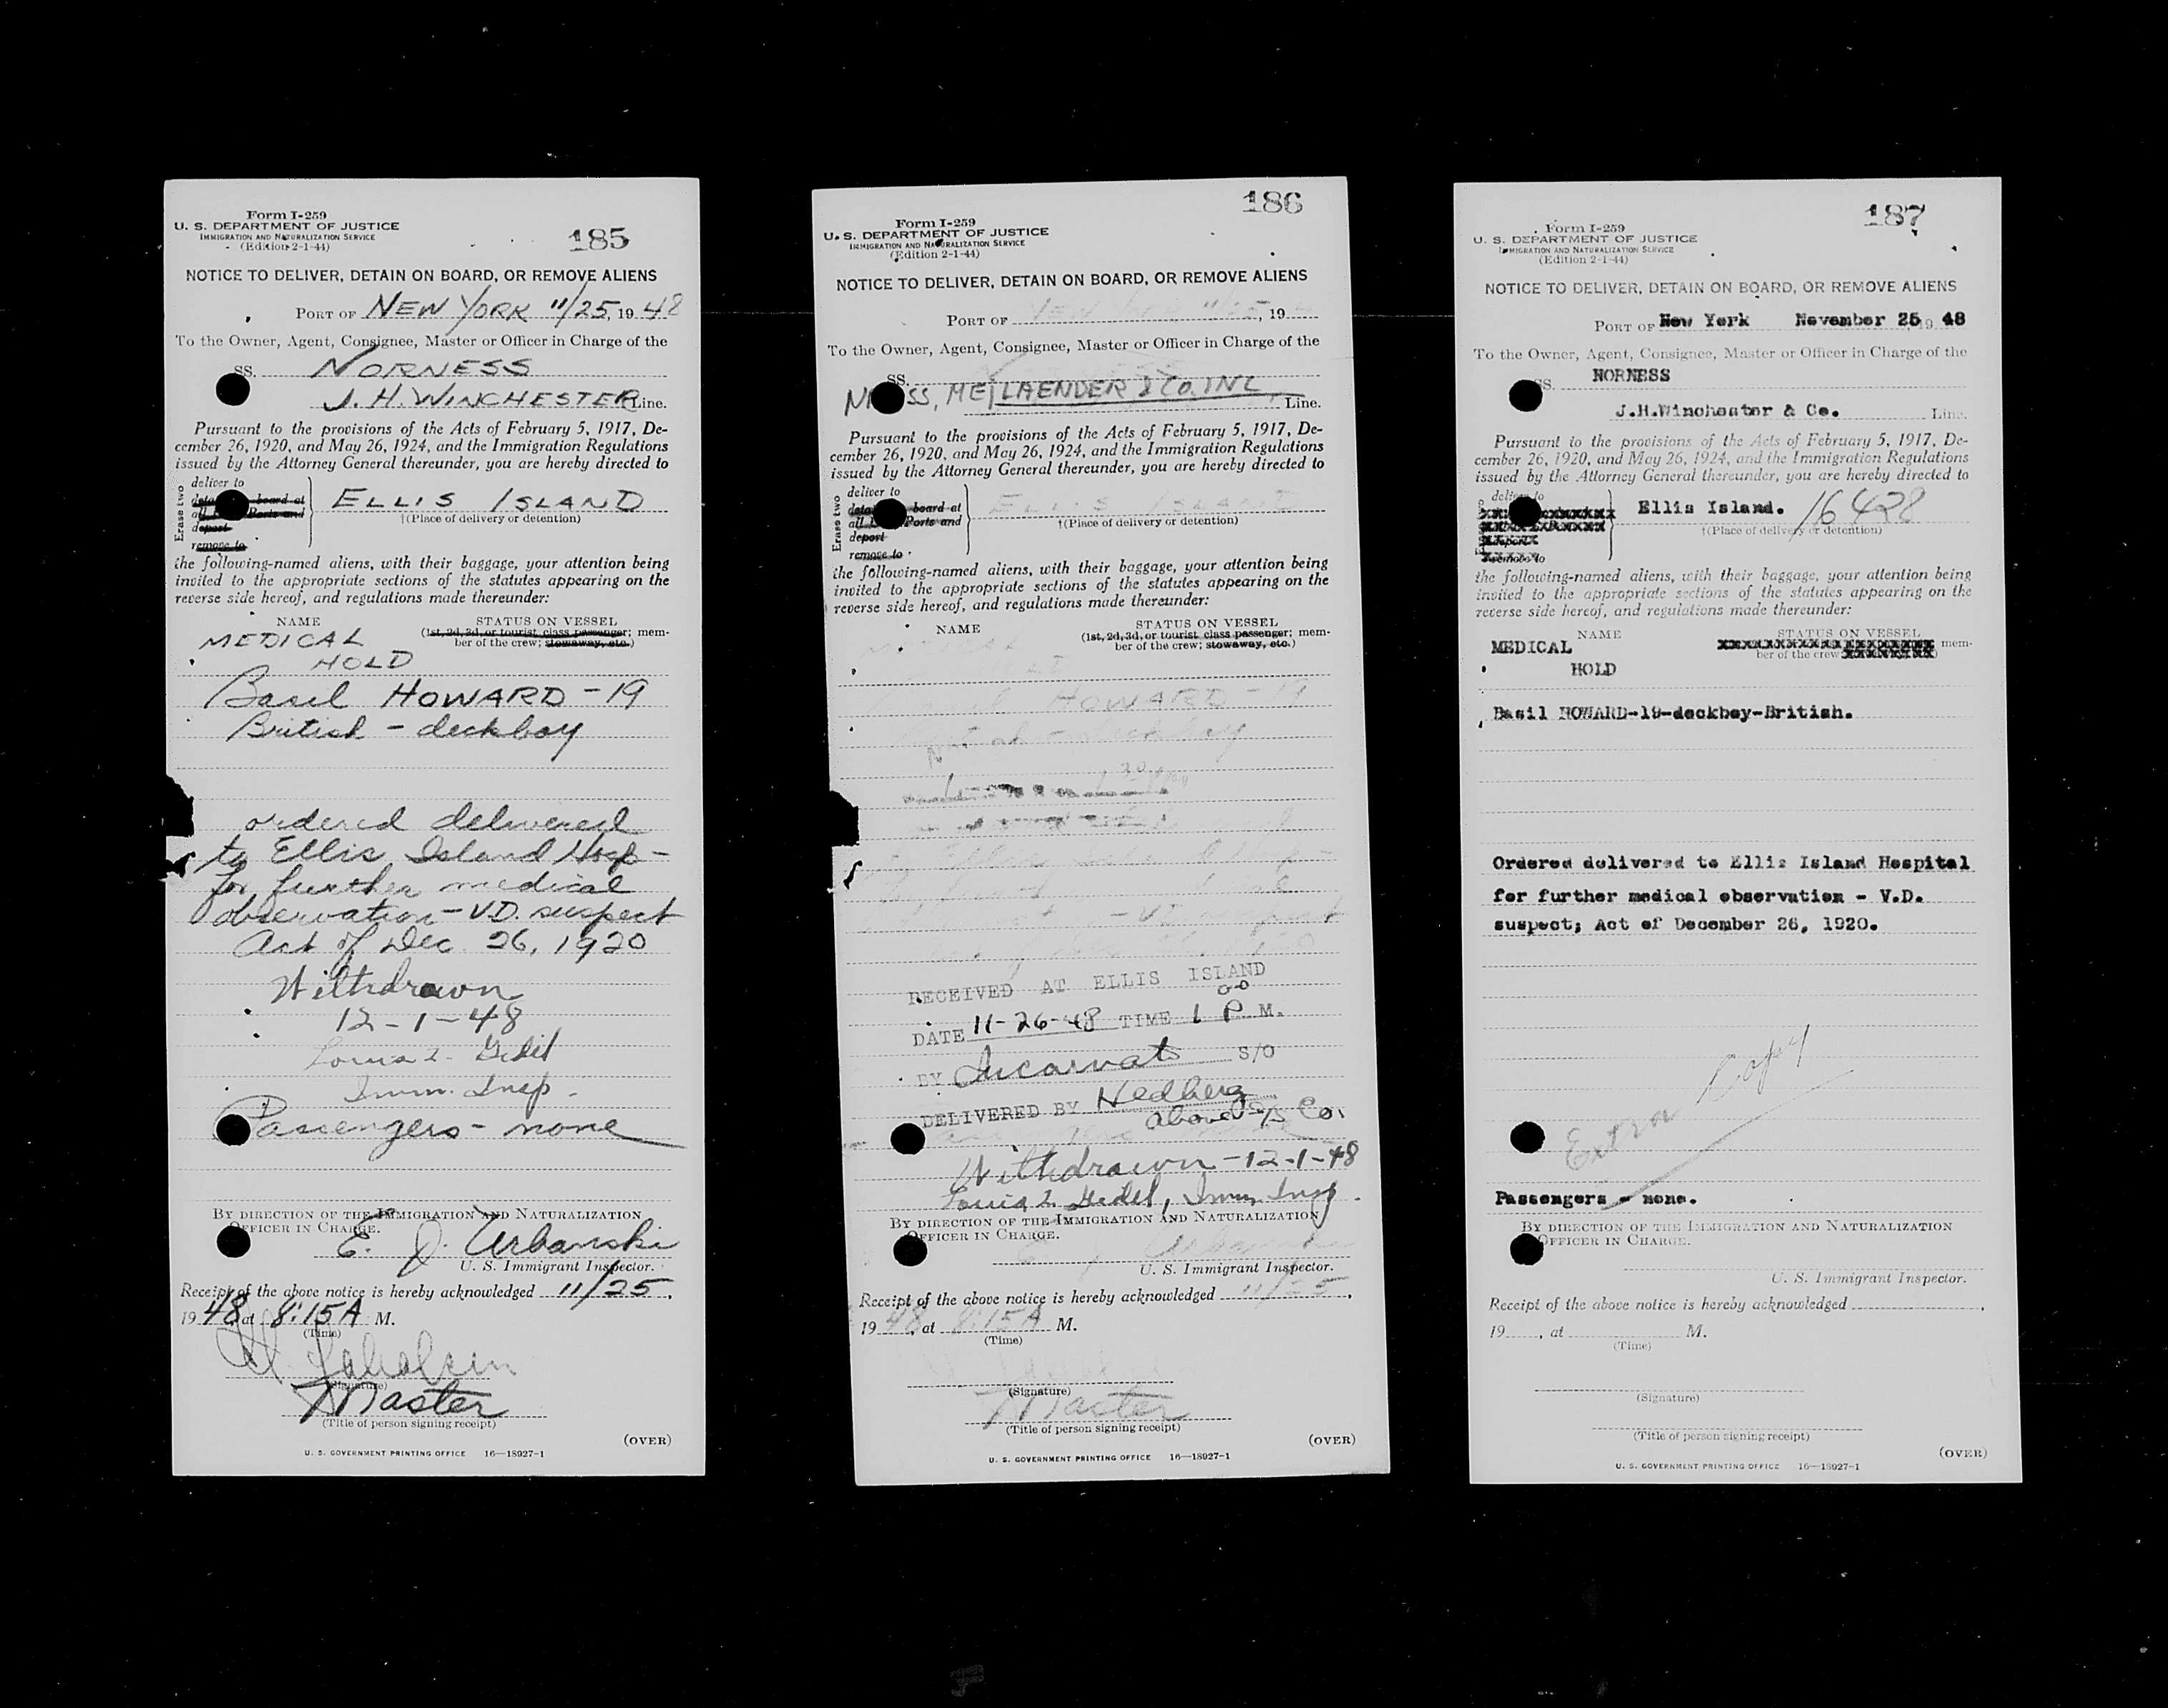 Form I-259
U. S. DEPARTMENT OF JUSTICE
IMMIGRATION AND NATURALIZATION SERVICE
(Edition 2-1-44)
185
NOTICE TO DELIVER, DETAIN ON BOARD, OR REMOVE ALIENS
PORT OF NEW YORK 11/25, 1948
To the Owner, Agent, Consignee, Master or Officer in Charge of the
SS. NORNESS
J. H. WINCHESTER Line.
Pursuant to the provisions of the Acts of February 5, 1917, De-
cember 26, 1920, and May 26, 1924, and the Immigration Regulations
issued by the Attorney General thereunder, you are hereby directed to
Erase two
deliver to
board at
all Ports and
deport
remove to
ELLIS ISLAND
†(Place of delivery or detention)
the following-named aliens, with their baggage, your attention being
invited to the appropriate sections of the statutes appearing on the
reverse side hereof, and regulations made thereunder:
NAME STATUS ON VESSEL
(1st, 2d, 3d, or tourist class passenger; mem-
ber of the crew; stowaway, etc.)
MEDICAL
HOLD
Basil HOWARD - 19
British - deckboy
ordered delivered
to Ellis Island Hosp -
for further medical
observation - V.D. suspect
Act of Dec 26, 1920
Withdrawn
12-1-48
Louis
Imm. Insp.
Passengers - none
BY DIRECTION OF THE IMMIGRATION AND NATURALIZATION
OFFICER IN CHARGE.
E. J. Urbanski
U. S. Immigrant Inspector.
Receipt of the above notice is hereby acknowledged 11/25,
1948 at 8:15 A M.
(Time)
(Signature)
Master
(Title of person signing receipt)
(OVER)
U. S. GOVERNMENT PRINTING OFFICE 16—18927-1
186
Form I-259
U. S. DEPARTMENT OF JUSTICE
IMMIGRATION AND NATURALIZATION SERVICE
(Edition 2-1-44)
NOTICE TO DELIVER, DETAIN ON BOARD, OR REMOVE ALIENS
PORT OF NEW YORK 11/25, 19
To the Owner, Agent, Consignee, Master or Officer in Charge of the
SS.
LAENDER & CO. INC. Line.
Pursuant to the provisions of the Acts of February 5, 1917, De-
cember 26, 1920, and May 26, 1924, and the Immigration Regulations
issued by the Attorney General thereunder, you are hereby directed to
Erase two
deliver to
board at
all Ports and
deport
remove to
ELLIS ISLAND
†(Place of delivery or detention)
the following-named aliens, with their baggage, your attention being
invited to the appropriate sections of the statutes appearing on the
reverse side hereof, and regulations made thereunder:
NAME STATUS ON VESSEL
(1st, 2d, 3d, or tourist class passenger; mem-
ber of the crew; stowaway, etc.)
HOWARD - 19
deckboy
RECEIVED AT ELLIS ISLAND
DATE 11-26-48 TIME 1 00 P. M.
BY S/O
DELIVERED BY Hedberg
above S/S Co.
Withdrawn - 12-1-48
Louis Imm. Insp.
BY DIRECTION OF THE IMMIGRATION AND NATURALIZATION
OFFICER IN CHARGE.
U. S. Immigrant Inspector.
Receipt of the above notice is hereby acknowledged 11/25,
1948, at 8:15 A M.
(Time)
(Signature)
Master
(Title of person signing receipt)
(OVER)
U. S. GOVERNMENT PRINTING OFFICE 16—18927-1
187
Form I-259
U. S. DEPARTMENT OF JUSTICE
IMMIGRATION AND NATURALIZATION SERVICE
(Edition 2-1-44)
NOTICE TO DELIVER, DETAIN ON BOARD, OR REMOVE ALIENS
PORT OF New York November 25, 1948
To the Owner, Agent, Consignee, Master or Officer in Charge of the
SS. NORNESS
J.H.Winchester & Co. Line.
Pursuant to the provisions of the Acts of February 5, 1917, De-
cember 26, 1920, and May 26, 1924, and the Immigration Regulations
issued by the Attorney General thereunder, you are hereby directed to
deliver to
Ellis Island. 16428
†(Place of delivery or detention)
the following-named aliens, with their baggage, your attention being
invited to the appropriate sections of the statutes appearing on the
reverse side hereof, and regulations made thereunder:
NAME STATUS ON VESSEL
mem-
ber of the crew
MEDICAL
HOLD
Basil HOWARD-19-deckboy-British.
Ordered delivered to Ellis Island Hospital
for further medical observation - V.D.
suspect; Act of December 26, 1920.
Extra Copy
Passengers - none.
BY DIRECTION OF THE IMMIGRATION AND NATURALIZATION
OFFICER IN CHARGE.
U. S. Immigrant Inspector.
Receipt of the above notice is hereby acknowledged
19 , at M.
(Time)
(Signature)
(Title of person signing receipt)
(OVER)
U. S. GOVERNMENT PRINTING OFFICE 16—18927-1